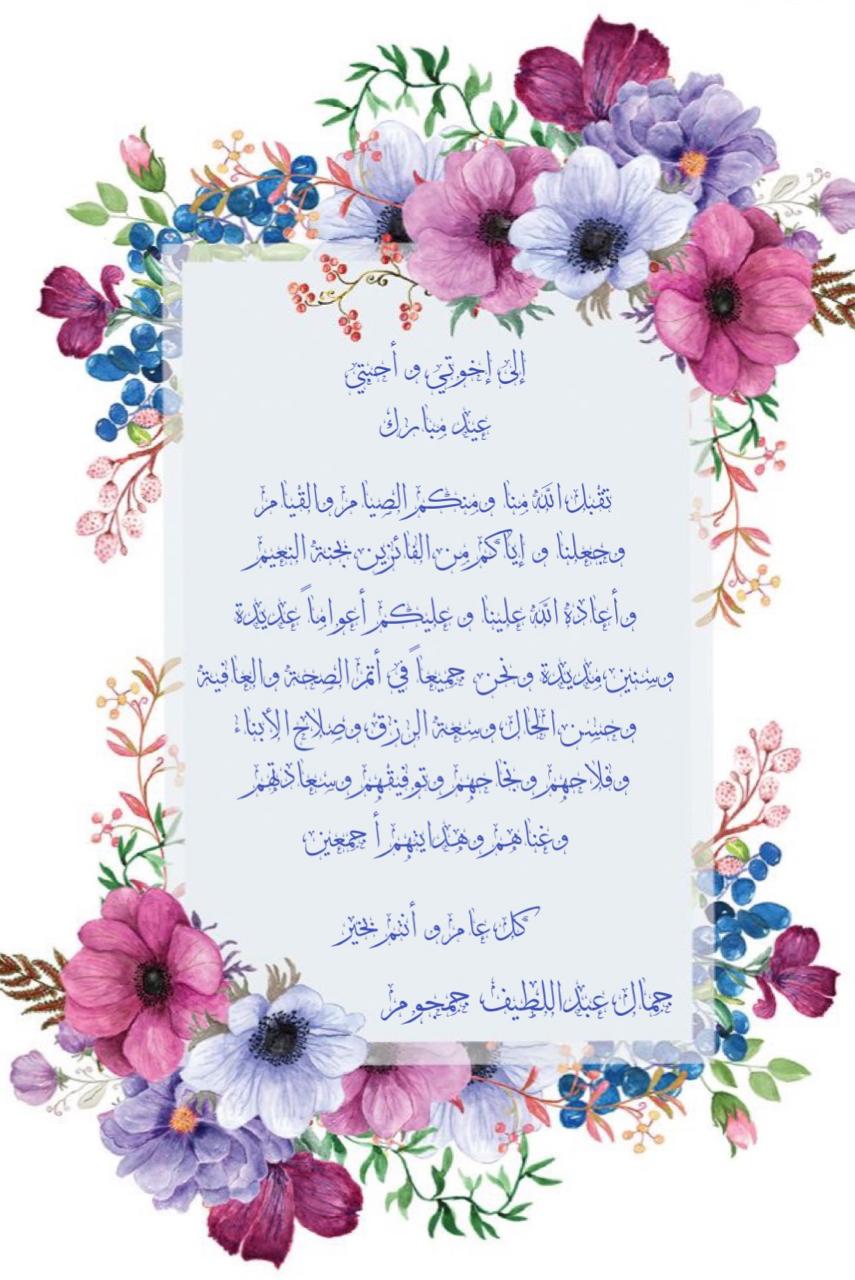 إلى إخوتي و أحبتي
عيد مبارك
تقبل الله منا ومنكم الصيام والقيام
وجعلنا و إياكم من الفائزين بجنة النعيم
وأعاده الله علينا و عليكم أعواماً عديدة
وسنين مديدة ونحن جميعاً في أتم الصحة والعافية
وحسن الحال وسعة الرزق وصلاح الأبناء
وفلاحهم ونجاحهم وتوفيقهم وسعادتهم
وغناهم وهدايتهم أجمعين
كل عام و أنتم بخير
جمال عبداللطيف جمجوم